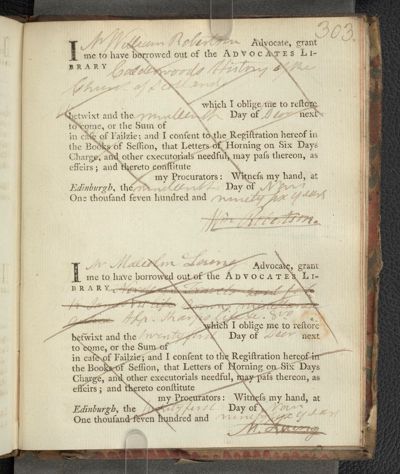 303.
I Mr William Robertson Advocate, grant
me to have borrowed out of the ADVOCATES LI-
BRARY Calderwoods History of the
Church of Scotland
which I oblige me to reſtore
betwixt and the nineteenth Day of Decr next
to come, or the Sum of
in caſe of Failzie; and I conſent to the Regiſtration hereof in
the Books of Seſſion, that Letters of Horning on Six Days
Charge, and other executorials needful, may paſs thereon, as
effeirs; and thereto conſtitute
my Procurators: Witneſs my hand, at
Edinburgh, the nineteenth Day of Novr
One thouſand ſeven hundred and ninety six years
Wm Robertson.
I Mr Malcolm Laing Advocate, grant
me to have borrowed out of the ADVOCATES LI-
BRARY
8vo
which I oblige me to reſtore
betwixt and the twenty first Day of Decr next
to come, or the Sum of
in caſe of Failzie; and I conſent to the Regiſtration hereof in
the Books of Seſſion, that Letters of Horning on Six Days
Charge, and other executorials needful, may paſs thereon, as
effeirs; and thereto conſtitute
my Procurators: Witneſs my hand, at
Edinburgh, the twenty first Day of Novr
One thouſand ſeven hundred and ninety six years
M. Laing